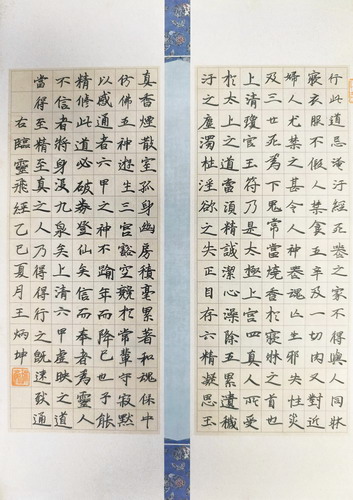 行此道忌淹汙经死丧之家不得與人同牀
寝衣服不假人禁食五辛及一切肉又對近
婦人尤禁之甚令人神丧魂亡生邪失性災
及三世死為下鬼常當燒香於寝牀之首也
上清瓊宮玉符乃是太極上宮四真人所受
於太上之道當須精誠潔心澡除五累遺穢
汙之塵濁杜淫欲之失正目存六精凝思玉
真香煙散室孤身幽房積毫累著和魂保中
仿佛五神遊生三宮豁空競於常輩守寂默
以感通者六甲之神不踰年而降已也子能
精修此道必破券登仙矣信而奉者為靈人
不信者將身没九泉矣上清六甲虛映之道
當得至精至真之人乃得得行之既速致通
右臨靈飛經乙巳夏月王炳坤